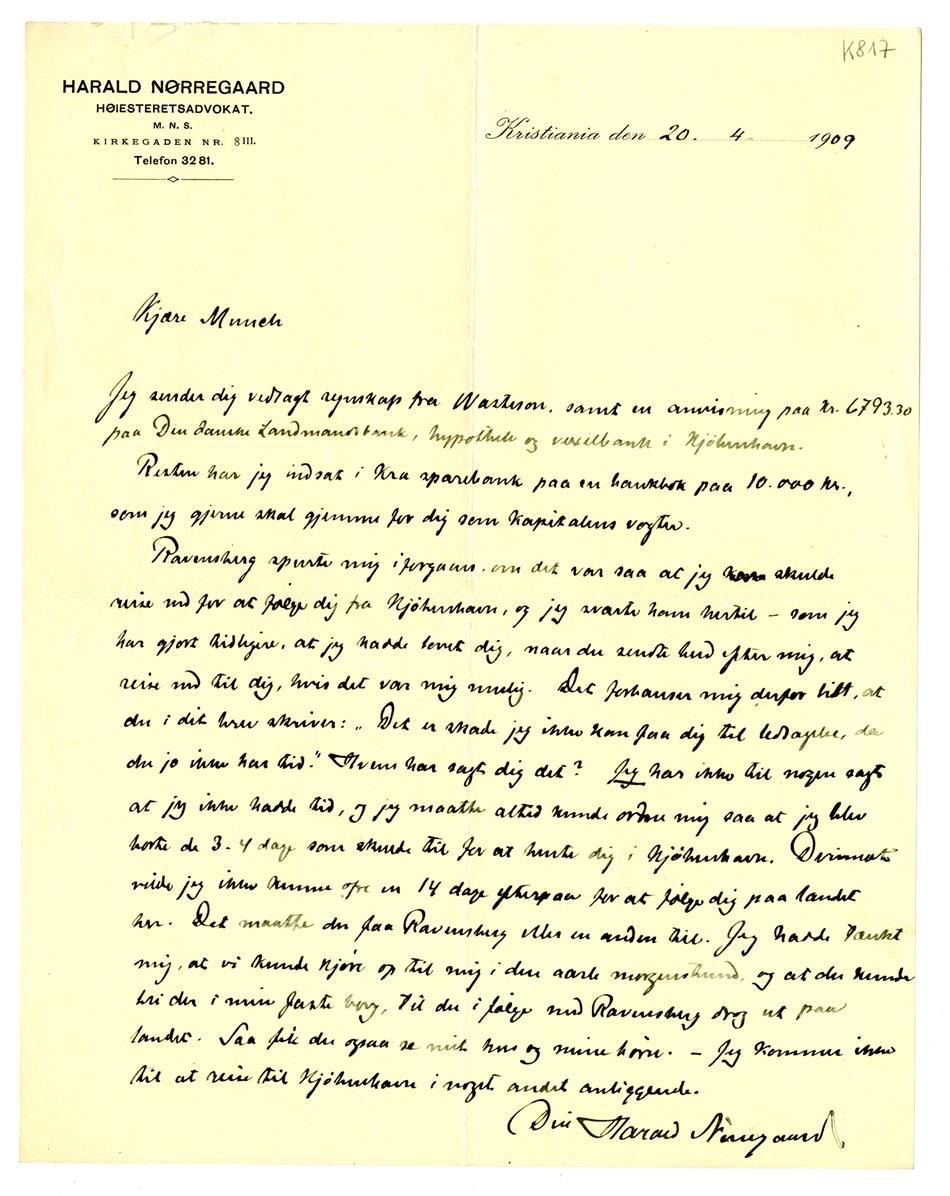 K817
HARALD NØRREGAARD
HØIESTERETSADVOKAT.
M. N. S.
KIRKEGADEN NR. 8 III.
Telefon 3281.
Kristiania den 20. 4 1909
Kjære Munch
Jeg sender dig vedlagt regnskap fra Warterson, samt en anvisning paa Kr. 6793.30
paa Den danske Landmandsbank, hypothek og vexelbank i Kjöbenhavn.
Resten har jeg indsat i Kra sparebank paa en bankbok paa 10.000 kr.,
som jeg gjerne skal gjemme for dig som kapitalens vogter.
Ravensberg spurte mig iforgaars om det var saa at jeg skulde
reise ned for at følge dig fra Kjöbenhavn, og jeg svarte ham hertil – som jeg
har gjort tidligere, at jeg hadde lovet dig, naar du sendte bud efter mig, at
reise ned til dig, hvis det var mig mulig. Det forbauser mig derfor litt, at
du i dit brev skriver: „Det er skade jeg ikke kan faa dig til ledsagelse, da
du jo ikke har tid." Hvem har sagt dig det? Jeg har ikke til nogen sagt
at jeg ikke hadde tid, og jeg maatte altid kunde ordne mig saa at jeg blev
borte de 3-4 dage som skulde til for at hente dig i Kjöbenhavn. Derimot
vilde jeg ikke kunne ofre en 14 dage efterpaa for at følge dig paa landet
her. Det maatte du faa Ravensberg eller en anden til. Jeg hadde tænkt
mig, at vi kunde kjøre op til mig i den aarle morgenstund, og at du kunde
bli der i min faste borg, til du i følge med Ravensberg drog ut paa
landet. Saa fik du ogsaa se mit hus og mine børn. – Jeg kommer ikke
til at reise til Kjöbenhavn i noget andet anliggende.
Din Harald Nørregaard